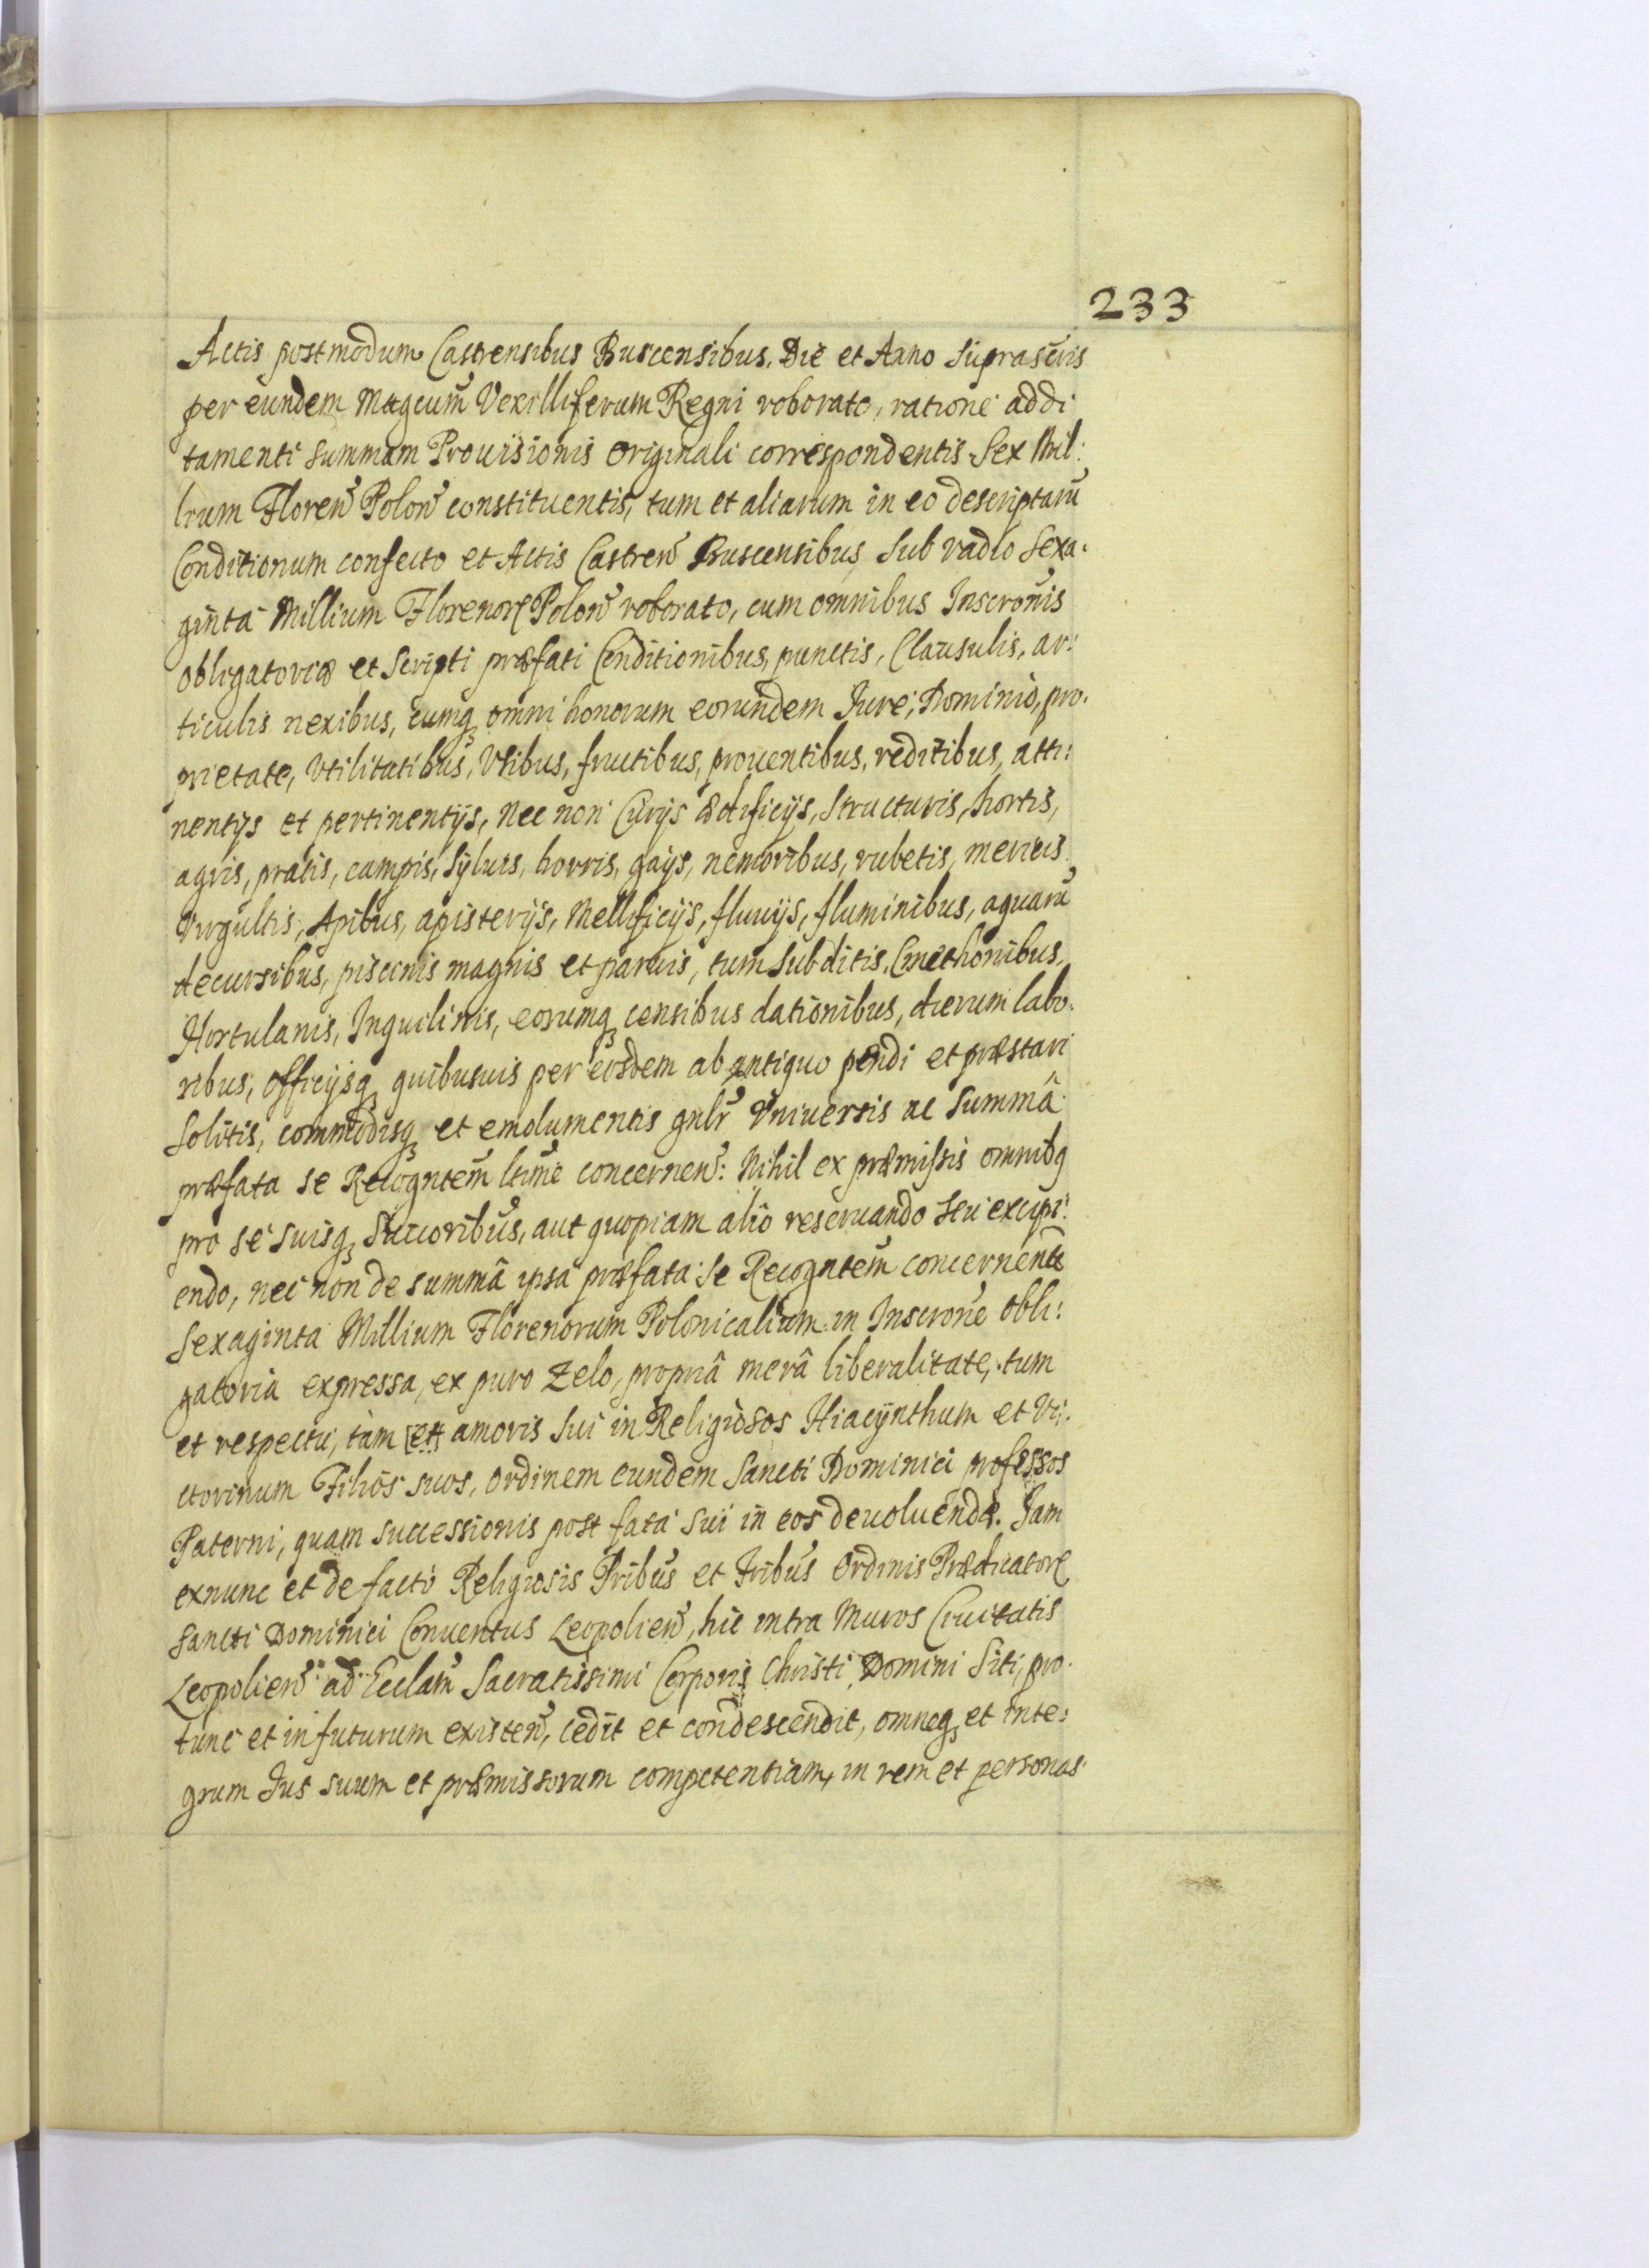 233
Actis postmodum Castrensibus Buscensibus. Die et Anno suprascris
per eundem Magcum Vexilliferum Regni roborato, ratione addi
tamenti summam Prouisionis originali correspondentis Sex Mil:
lium Floren Polon constituentis, tum et aliarum in eo descriptaru
Conditionum confecto et Actis Castren Buscensibus sub vadio Sexa:
ginta Millium Florenor Polon roborato, cum omnibus Inscronis
obligatoriæ et Scripti præfati Conditionibus, punctis, Clausulis, ar:
ticulis nexibus, cumq omni honorum eorundem Jure, Dominio, pro:
prietate, Vtilitatibus, Vsibus, fructibus, prouentibus, reditibus, atti:
nentys et pertinentijs, nec non Curys ædificijs, structuris, hortis,
agris, pratis, campis, Syluis, horris, gays, nemoribus, rubetis, mericis
Virgultis, Apibus, apisterijs, Mellificijs, fluuijs, fluminibus, aquarū
decursibus, piscinis magnis et paruis, tum Subditis, Cmethonibus,
Hortulanis, Inquilinis, eorumq censibus dationibus, dierum labo:
ribus, officijsq quibusuis per eosdem ab antiquo pendi et præstari
solitis, commodisq et emolumentis gnlr Vniuersis ac Summâ
præfata se Recogntem ltime concernen: Nihil ex præmissis omnibq
pro se suisq Succoribus, aut quopiam alio reseruando seu excipi:
endo, nec non de summâ ipsa præfata se Recogntem concernente
Sexaginta Millium Florenorum Polonicalium in Inscrone obli:
gatoria expressa, ex puro Zelo, propriâ merâ liberalitate, tum
et respectu, tam [et] amoris sui in Religiosos Hiacynthum et Vi:
ctorinum Filios suos, ordinem eundem Sancti Dominici professos
Paterni, quam successionis post fata sui in eos deuoluendæ. Jam
exnunc et de facto Religiosis Pribus et Fribus Ordinis Prædicator
Sancti Dominici Conuentus Leopolien, hic intra Muros Ciuitatis
Leopolien ad Ecclam Sacratissimi Corporis Christi Domini Siti, pro
tunc et in futurum existen, cedit et condescendit, omneq et inte:
grum Jus suum et præmissorum competentiam, in rem et personas